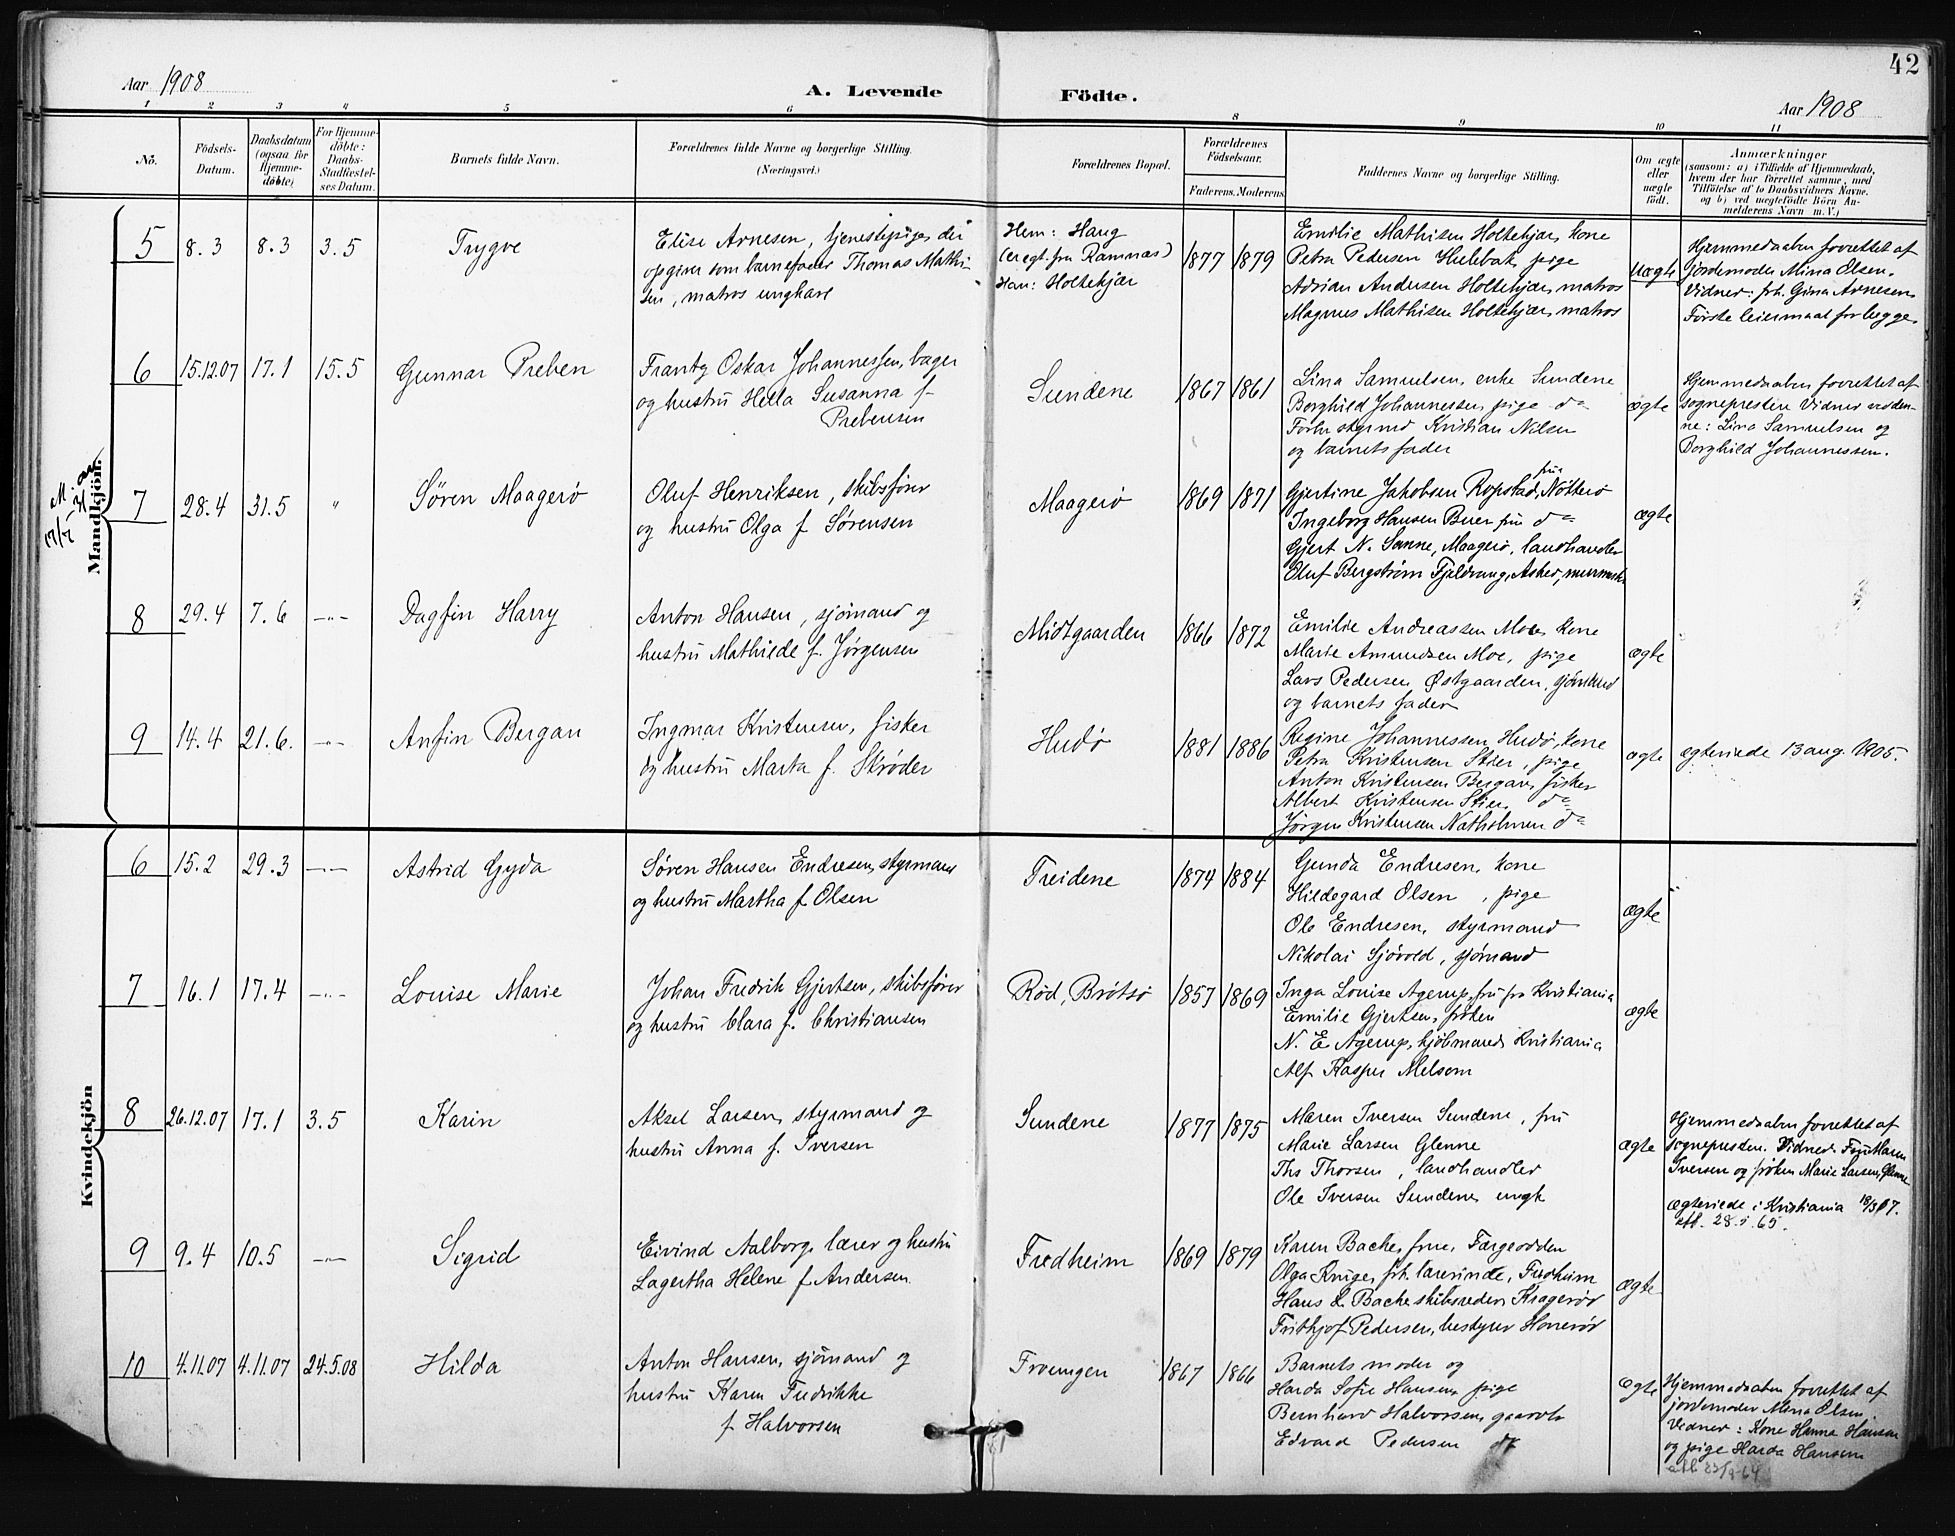 42
Aar 1908
A. Levende Födte.
Aar 1908
1 2 3 4 5 6 8 9 10 11
No.
Födsels-
Datum.
Daabsdatum
(ogsaa for
Hjemme-
döbte)
For Hjemme-
döbte:
Daabs-
Stadfæstel-
ses Datum.
Barnets fulde Navn.
Forældrenes fulde Navne og borgerlige Stilling.
(Næringsvei.)
Forældrenes Bopæl.
Forældrenes
Födselsaar.
Faderens. Moderens.
Faddernes Navne og borgerlige Stilling.
Om ægte
eller
uægte
födt.
Anmærkninger
(saasom: a) i Tilfælde af Hjemmedaab,
hvem der har forrettet samme, med
Tilföielse af to Daabsvidners Navne.
og b) ved uægtefödte Börn An-
melderens Navn m. V.)
Mandkjön.
5
8.3
8.3
3.5
Trygve
Elise Arnesen, tjenestepige, der
opgiver som barnefader Thomas Mathi-
sen, matros ungkarl
Hem: Haug
(er egt. fra Ramnæs)
Han: Holtekjær
1877
1879
Emilie Mathisen Holtekjær, kone
Petra Pedersen Hulebak, pige
Adrian Andersen Holtekjær, matros
Magnus Mathisen Holtekjær, matros
uægte
Hjemmedaaben forrettet af
jordemoder Mina Olsen.
Vidner: frk. Gina Arnesen
Første leiermaal for begge.
6
15.12.07
17.1
15.5
Gunnar Preben
Frantz Oskar Johannessen, bager
og hustru Hella Susanna f.
Prebensen
Sundene
1867
1861
Lina Samuelsen, enke Sundene
Borghild Johannessen, pige do
Forhv styrmd Kristian Nilsen
og barnets fader
ægte
Hjemmedaaben forrettet af
sognepresten Vidner vedden-
ne: Lina Samuelsen og
Borghild Johannessen.
7
28.4
31.5
"
Søren Maagerö
Oluf Henriksen, skibsfører
og hustru Olga f. Sørensen
Maagerö
1869
1871
Gjertine Jakobsen Ropstad, fru Nötterö
Ingeborg Hansen Buer fru do
Gjert N. Sanne, Maagerö, landhandler
Oluf Bergström Fjeldvang, Asker, murmester
ægte
8
29.4
7.6
-"-
Dagfin Harry
Anton Hansen, sjömand og
hustru Mathilde f. Jørgensen
Midtgaarden
1866
1872
Emilie Andreassen Moe, kone
Marie Amundsen Moe, pige
Lars Pedersen Østgaarden, sjömand
og barnets fader
ægte
9
14.4
21.6.
-"-
Anfin Bergan
Ingmar Kristensen, fisker
og hustru Marta f. Skrøder
Hudö
1881
1886
Regine Johannessen Hudö, kone
Petra Kristensen Stier, pige
Anton Kristensen Bergan, fisker
Albert Kristensen Stier, do
Jørgen Kristensen Natholmen do
ægte
ægteviede 13 aug. 1905.
Kvindekjön
6
15.2
29.3
-"-
Astrid Gyda
Søren Hansen Endresen, styrmand
og hustru Martha f. Olsen
Treidene
1874
1884
Gunda Endresen, kone
Hildegard Olsen, pige
Ole Endresen, styrmand
Nikolai Sjövold, sjömand
ægte
7
16.1
17.4
-"-
Louise Marie
Johan Fredrik Gjertsen, skibsfører
og hustru Clara f. Christiansen
Röd, Brötsö
1857
1869
Inga Louise Agerup, fru fra Kristiania
Emilie Gjertsen, frøken
N. E. Agerup, kjöbmand, Kristiania
Alf Kasper Melsom
ægte
8
26.12.07
17.1
3.5
Karin
Aksel Larsen, styrmand og
hustru Anna f. Iversen
Sundene
1877
1875
Maren Iversen Sundene, fru
Marie Larsen Glenne
Ths Thorsen, landhandler
Ole Iversen Sundene, ungk
ægte
Hjemmedaaben forrettet af
sognepresten. Vidner: Fru Maren
Iversen og frøken Marie Larsen, Glenne
ægteviede i Kristiania 18/3 07.
att. 28.5.65.
9
9.4
10.5
-"-
Sigrid
Eivind Aalborg, lærer og hustru
Lagertha Helene f. Andersen
Fredheim
1869
1879
Karen Bache, frue, Færgeodden
Olga Kruge, frk. lærerinde, Fredheim
Hans L. Bache skibsreder, Kragerö
Frithjof Pedersen, bestyrer
ægte
10
4.11.07
4.11.07
24.5.08
Hilda
Anton Hansen, sjömand og
hustru Karen Fredrikke
f. Halvorsen
1867
1866
Barnets moder og
Harda Sofie Hansen, pige
Bernhard Halvorsen, gaardbr
Edvard Pedersen do
ægte
Hjemmedaaben forrettet af
jordemoder Mina Olsen
Vidner: Kone Hanna Hansen
og pige Harda Hansen